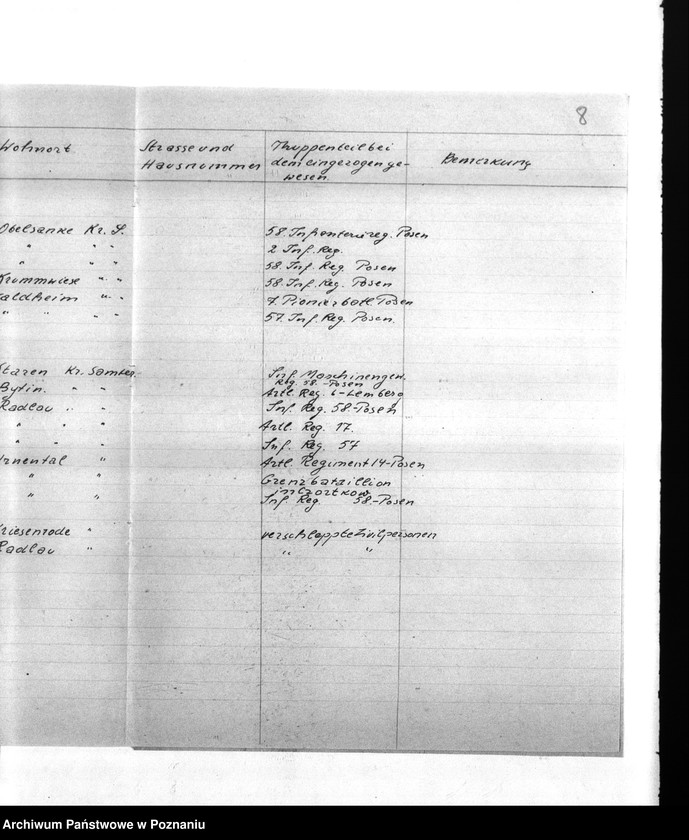 8
Wohnort Strasse und Hausnummer Truppenteil bei dem eingezogen gewesen. Bemerkung
Obelsanke Kr. S. 58. Infanteriereg. Posen
" " " 2 Inf. Reg.
" " " 58. Inf. Reg. Posen
Krummwiese " " 58. Inf. Reg. Posen
aldheim " " 7. Pionierbatl. Posen
" " " " 57. Inf. Reg. Posen.
Kr. Samter. Inf. Maschinengew.
Reg. 58.-Posen
Bytin. " " Artl. Reg. 6-Lemberg
Radlau " " Inf. Reg. 58-Posen
" " " Artl. Reg. 17.
" " " Inf. Reg. 57
nental " Artl. Regiment 14-Posen
" " Grenzbataillion
in Czortkow
" " Inf. Reg. 58-Posen
riesenrode " verschleppte Zivilpersonen
Radlau " " "
Archiwum Państwowe w Poznaniu